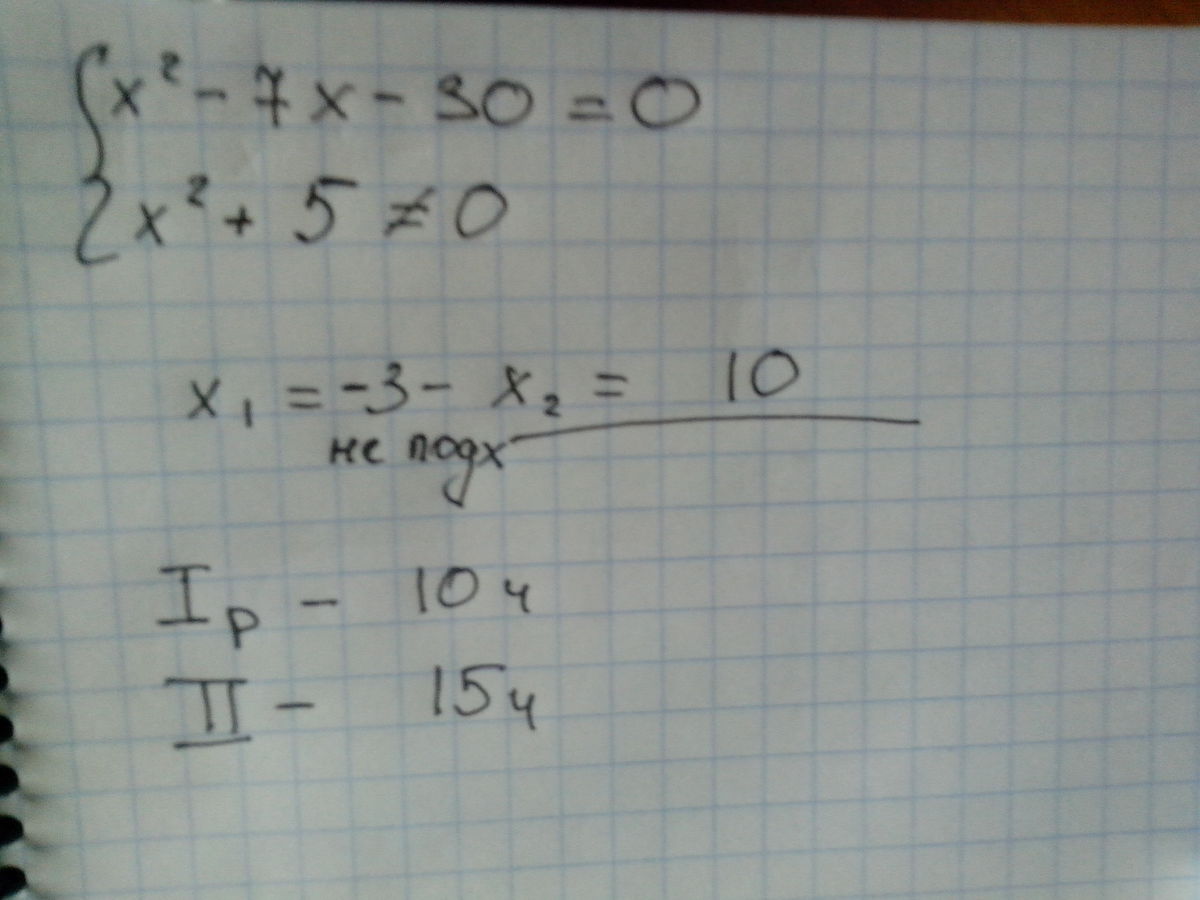 x² - 7x - 30 = 0
x² + 5 ≠ 0
x₁ = -3 - x₂ = 10
не подх
I р - 10 ч
II - 15 ч